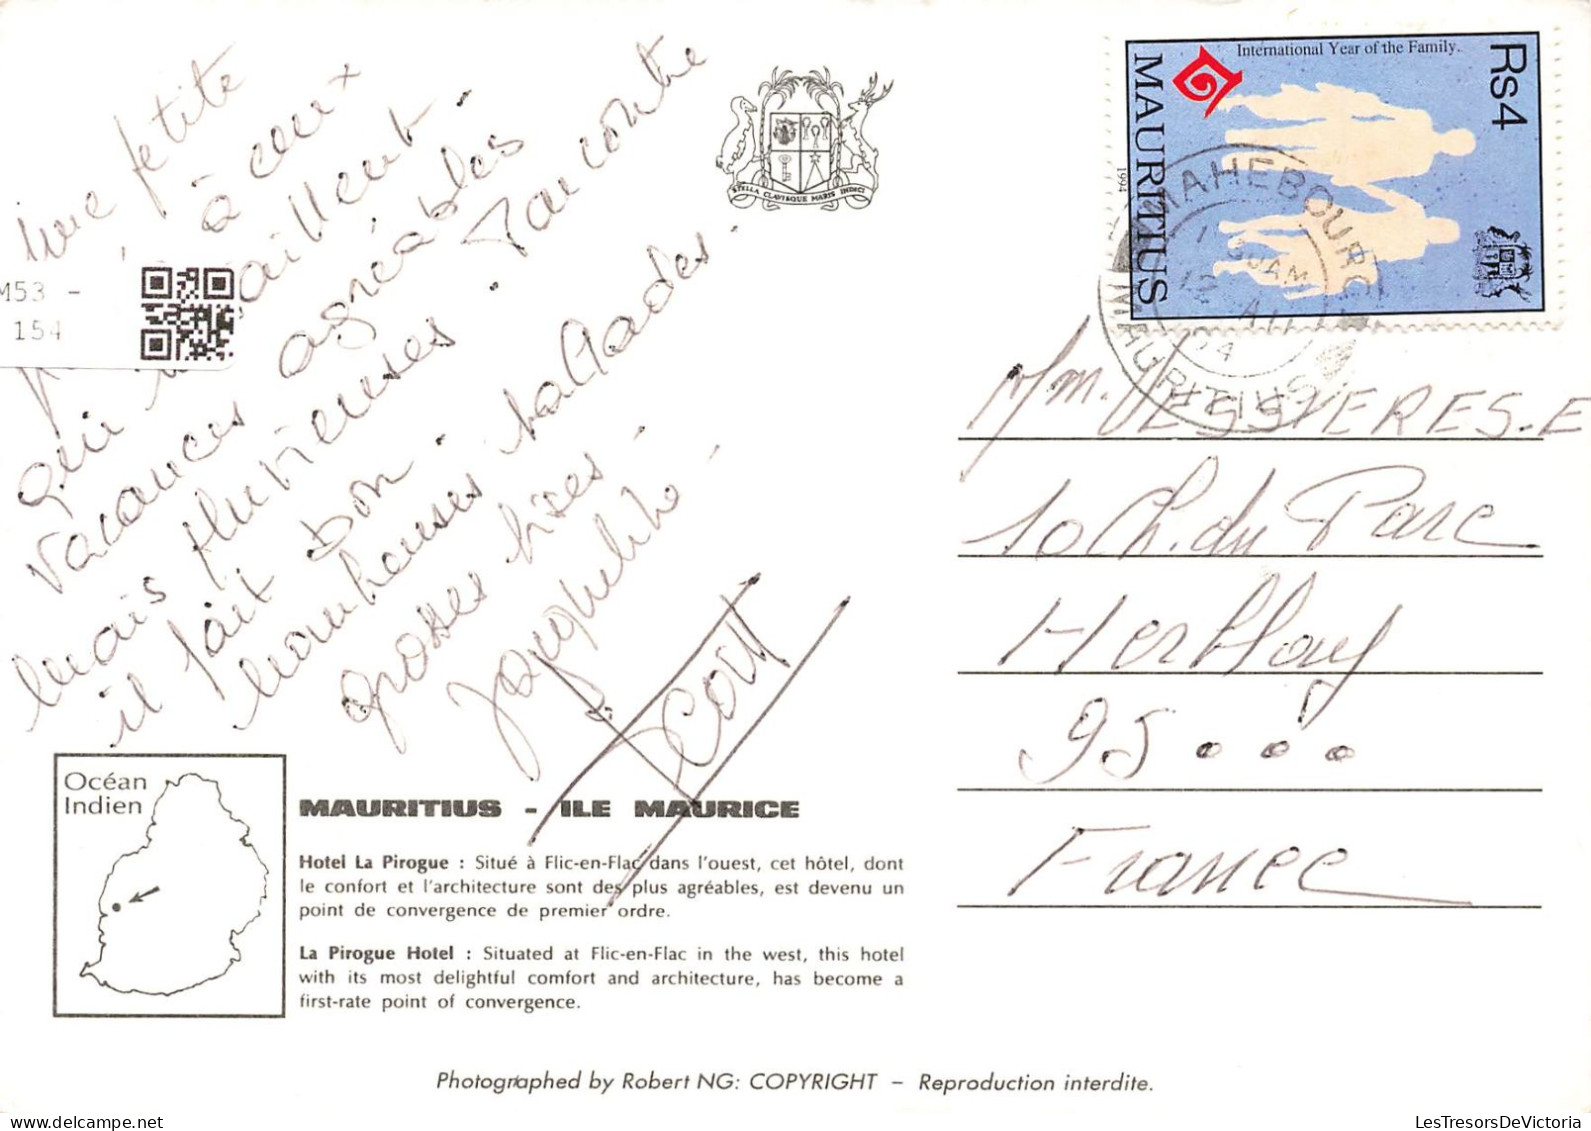 Une petite
à ceux
qui aillent.
vacances agréables
mais pluvieuses. Par contre
il fait bon.
nombreuses ballades.
grosses bises.
M53 -
154
STELLA CLAVISQUE MARIS INDICI
International Year of the Family.
Rs4
MAURITIUS
1994
MAHEBOURG
MAURITIUS
Mm. VESSIERES.E
10 Ch. du Parc
Herblay
95...
France
Océan
Indien
MAURITIUS - ILE MAURICE
Hotel La Pirogue : Situé à Flic-en-Flac dans l'ouest, cet hôtel, dont
le confort et l'architecture sont des plus agréables, est devenu un
point de convergence de premier ordre.
La Pirogue Hotel : Situated at Flic-en-Flac in the west, this hotel
with its most delightful comfort and architecture, has become a
first-rate point of convergence.
Photographed by Robert NG: COPYRIGHT – Reproduction interdite.
LesTresorsDeVictoria